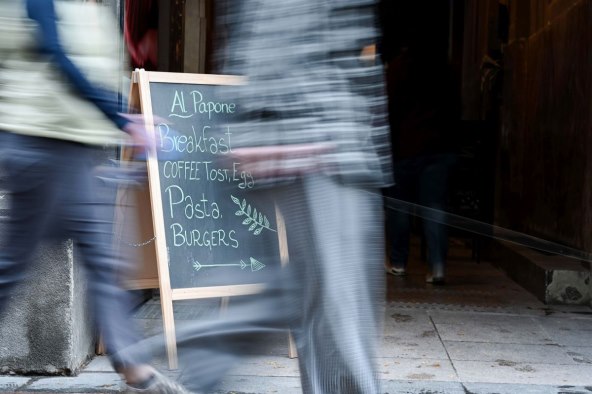 Al Papone
Breakfast
COFFEE Tost, Egg
Pasta,
BURGERS